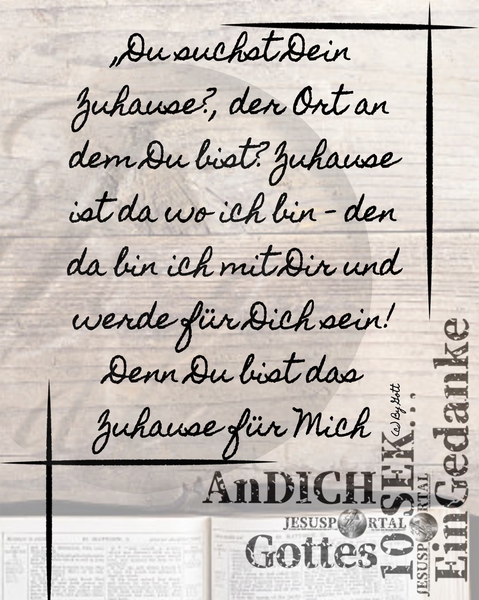 „Du suchst Dein
Zuhause?, der Ort an
dem Du bist? Zuhause
ist da wo ich bin - den
da bin ich mit Dir und
werde für Dich sein!
Denn Du bist das
Zuhause für Mich
(a) By Gott
AnDICH
JESUSPORTAL
Gottes
10SEK...
JESUSPORTAL
EinGedanke